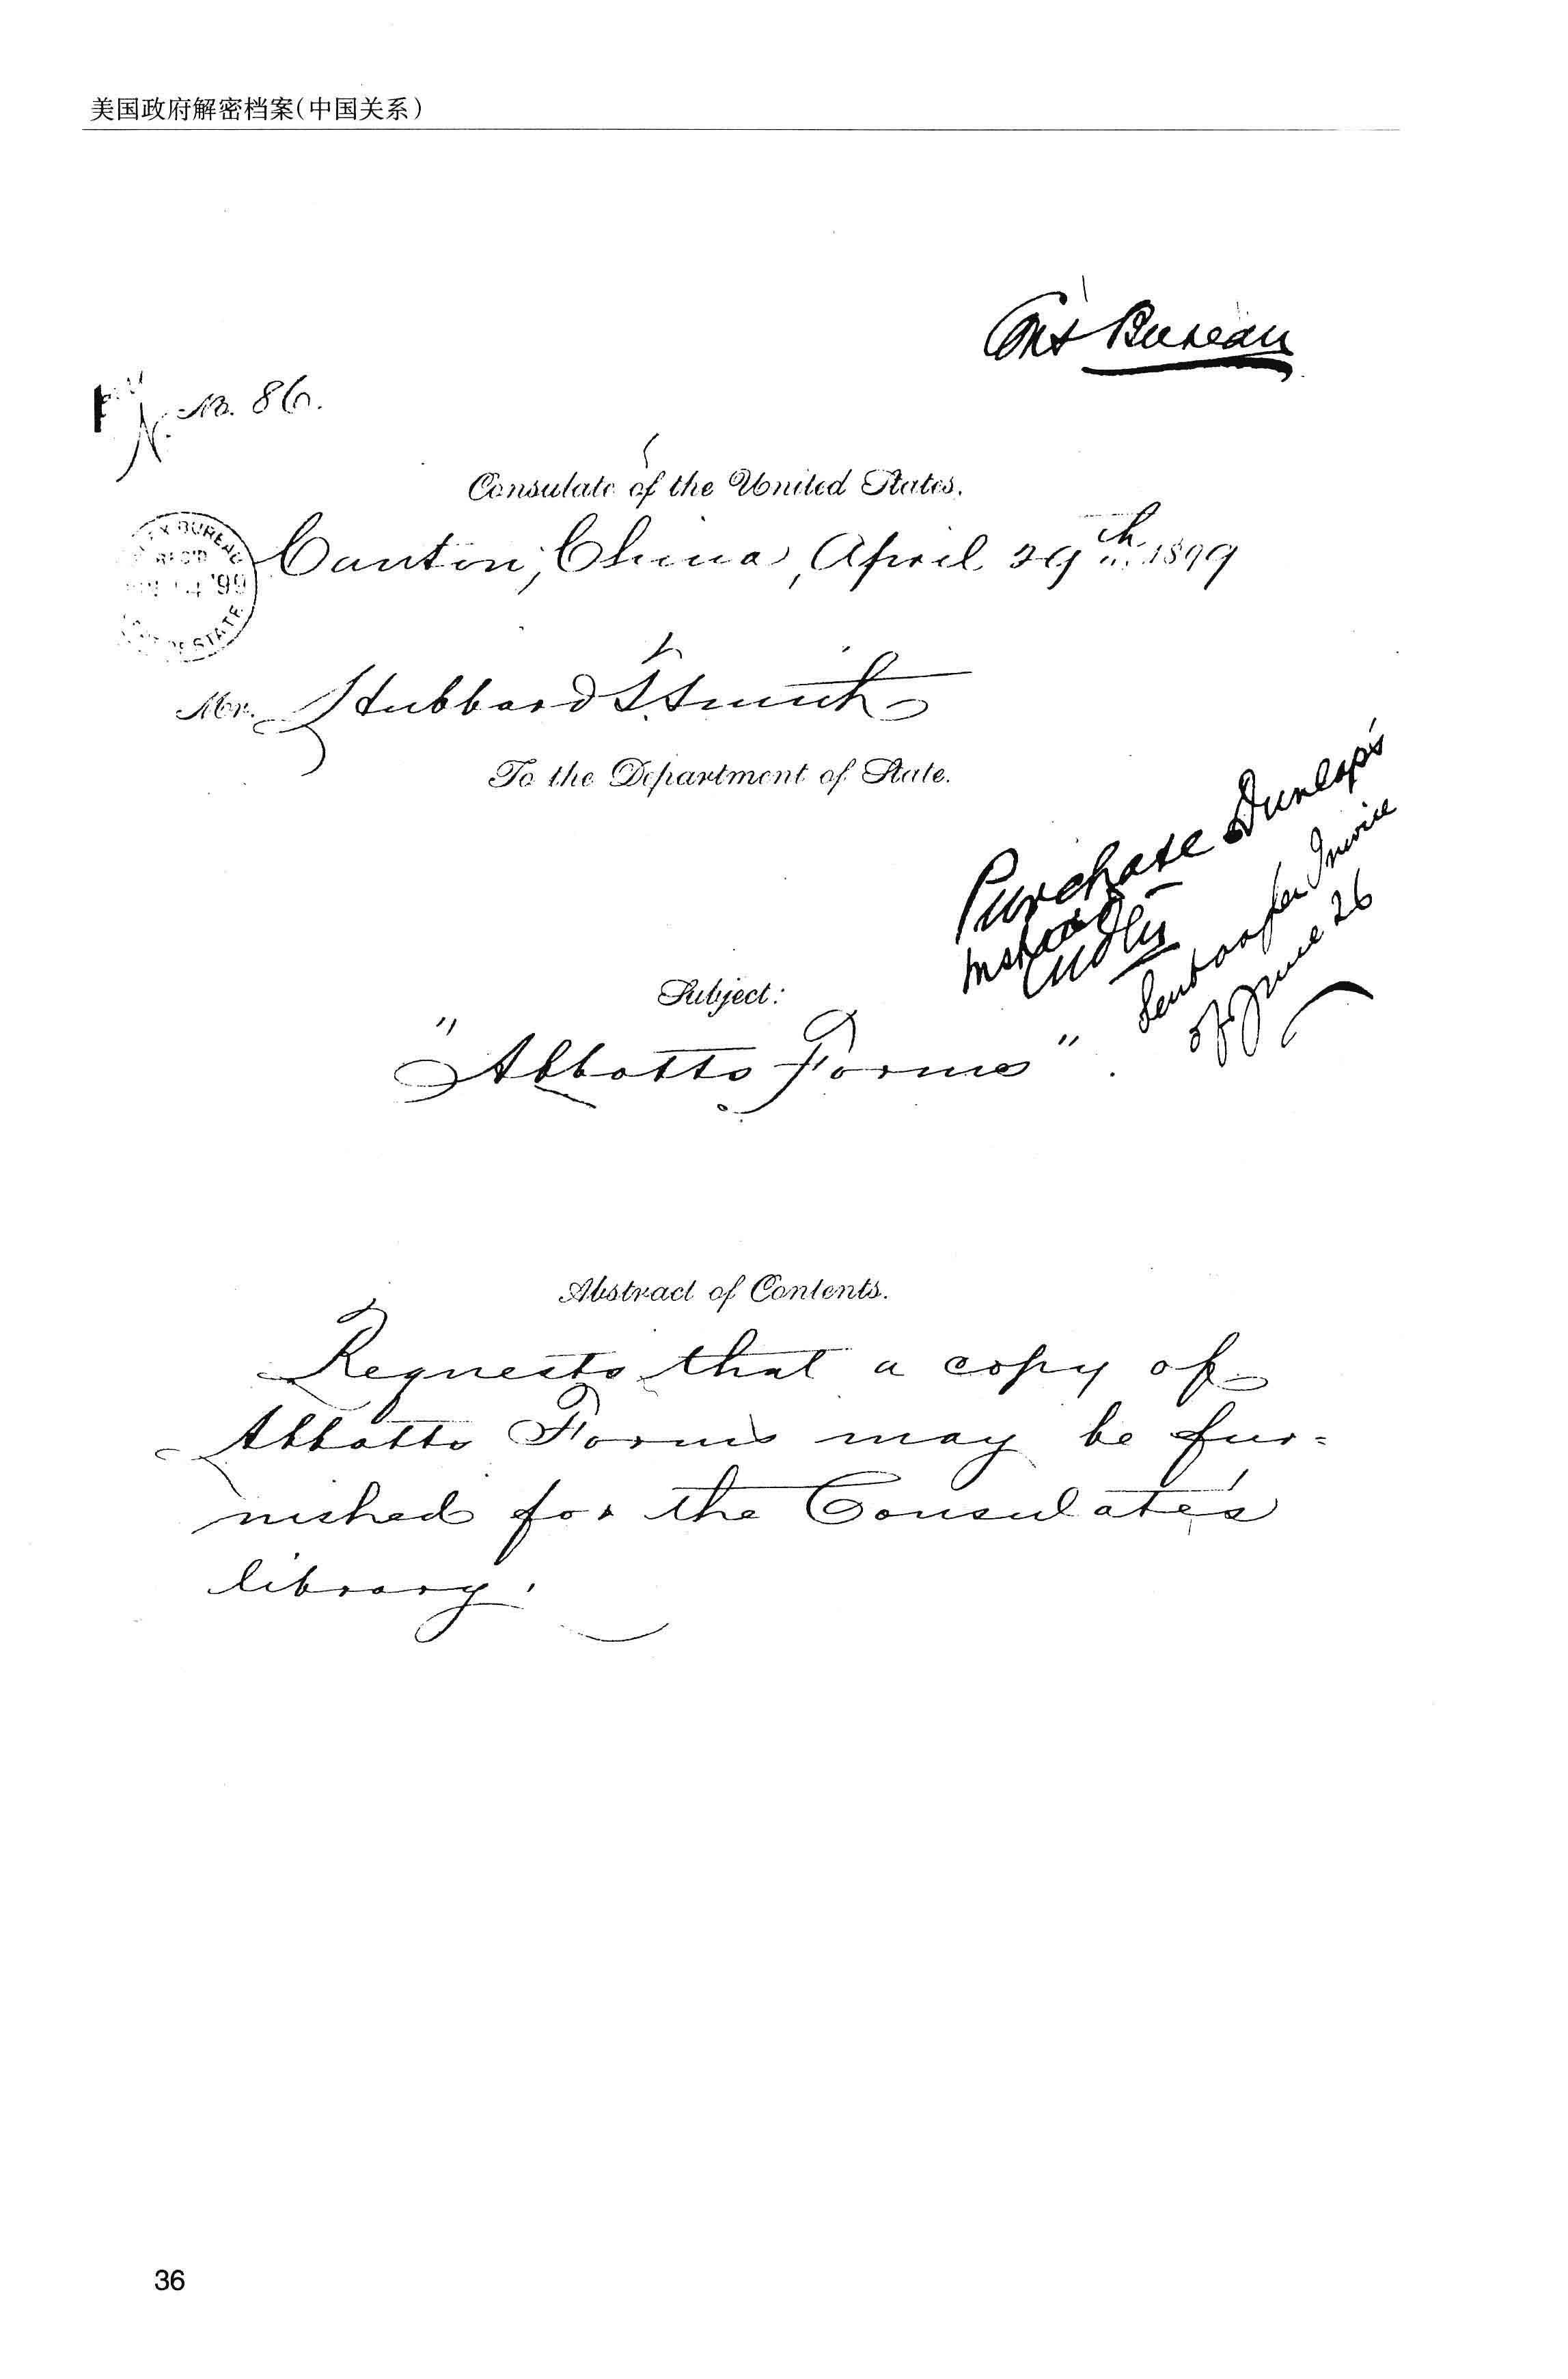 美国政府解密档案(中国关系)
Bureau
No. 86.
Consulate of the United States,
Canton, China, April 29th, 1899
BUREAU
'99
STATE
Mr. Hubbard T. Smith
To the Department of State.
Purchase Dunlap's
instead
Sent as per Invoice
of June 26
Subject:
"Abbotts Forms".
Abstract of Contents.
Requests that a copy of
Abbotts Forms may be fur=
nished for the Consulate's
library.
36